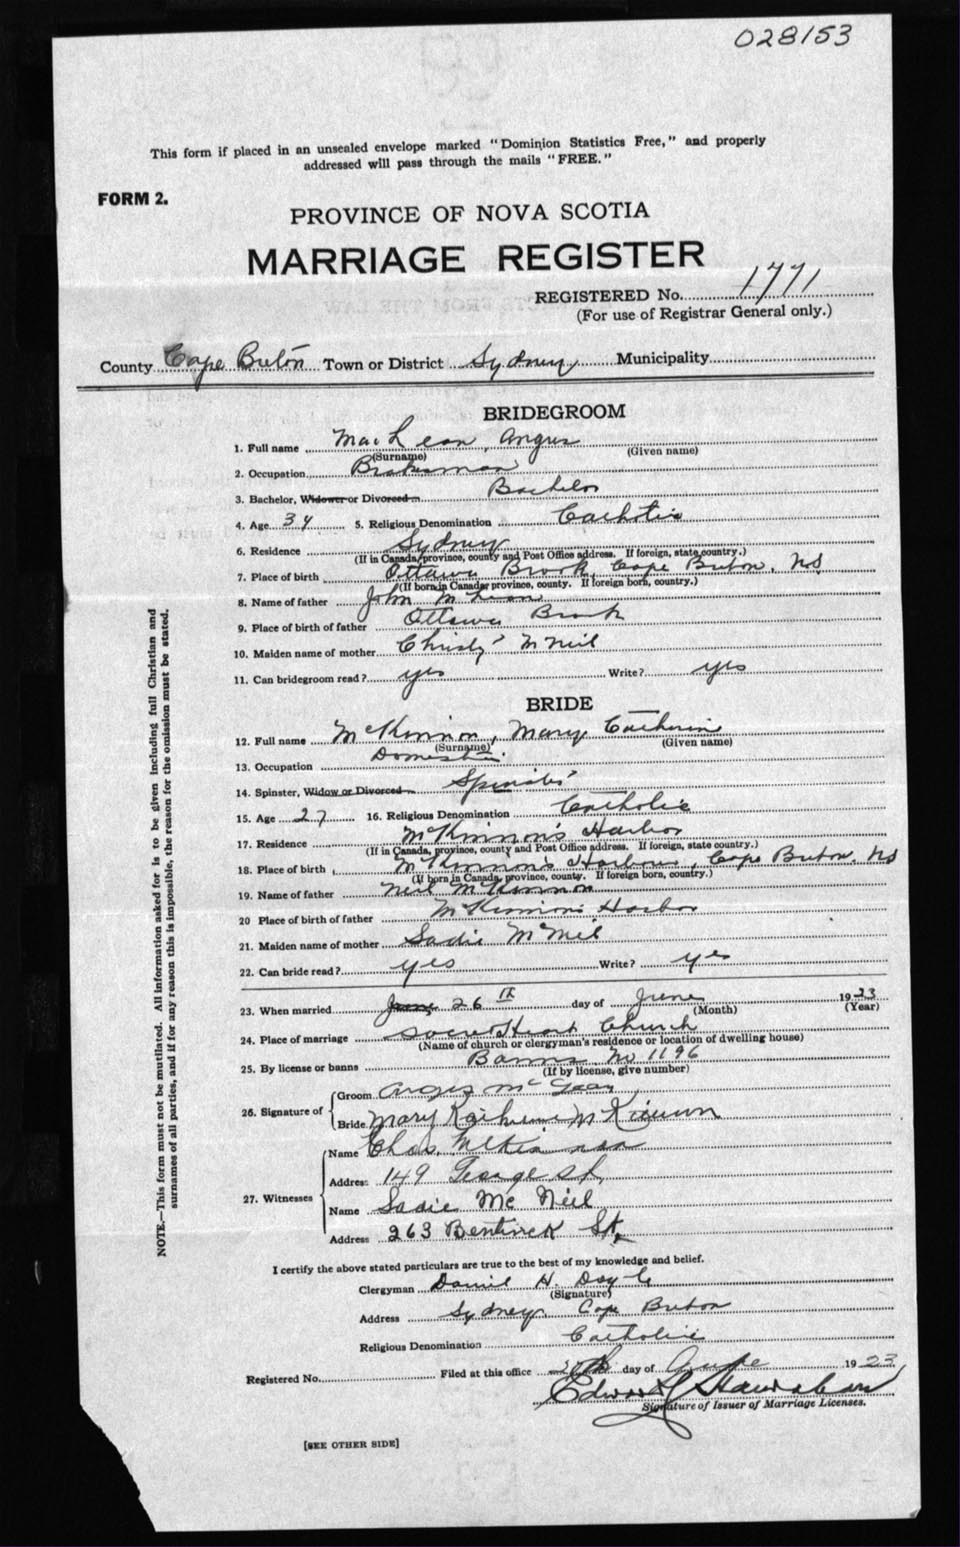 028153
This form if placed in an unsealed envelope marked "Dominion Statistics Free," and properly
addressed will pass through the mails "FREE."
FORM 2.
PROVINCE OF NOVA SCOTIA
MARRIAGE REGISTER
REGISTERED No. 1771
(For use of Registrar General only.)
County Cape Breton Town or District Sydney Municipality
BRIDEGROOM
1. Full name MacLean, Angus
(Surname) (Given name)
2. Occupation Brakeman
3. Bachelor, Widower or Divorced Bachelor
4. Age 34 5. Religious Denomination Catholic
6. Residence Sydney
(If in Canada, province, county and Post Office address. If foreign, state country.)
7. Place of birth Ottawa Brook, Cape Breton, NS
(If born in Canada, province, county. If foreign born, country.)
8. Name of father John McLean
9. Place of birth of father Ottawa Brook
10. Maiden name of mother Christy McNeil
11. Can bridegroom read? yes Write? yes
BRIDE
12. Full name McKinnon, Mary Catherin
(Surname) (Given name)
13. Occupation Domestic
14. Spinster, Widow or Divorced Spinster
15. Age 27 16. Religious Denomination Catholic
17. Residence McKinnon's Harbor
(If in Canada, province, county and Post Office address. If foreign, state country.)
18. Place of birth McKinnon's Harbour, Cape Breton, NS
(If born in Canada, province, county. If foreign born, country.)
19. Name of father Neil McKinnon
20 Place of birth of father McKinnon's Harbor
21. Maiden name of mother Sadie McNeil
22. Can bride read? yes Write? yes
23. When married 26th day of June 1923
(Month) (Year)
24. Place of marriage Sacred Heart Church
(Name of church or clergyman's residence or location of dwelling house)
25. By license or banns Banns No 1196
(If by license, give number)
26. Signature of
Groom Angus McLean
Bride Mary Katherine McKinnon
27. Witnesses
Name Chas. McKinnon
Address 149 George St,
Name Sadie McNeil
Address 263 Bentinck St,
I certify the above stated particulars are true to the best of my knowledge and belief.
Clergyman Daniel H. Doyle
(Signature)
Address Sydney Cape Breton
Religious Denomination Catholic
Registered No. Filed at this office day of June 1923
Edward
Signature of Issuer of Marriage Licenses.
[SEE OTHER SIDE]
NOTE.—This form must not be mutilated. All information asked for is to be given including full Christian and
surnames of all parties, and if for any reason this is impossible, the reason for the omission must be stated.